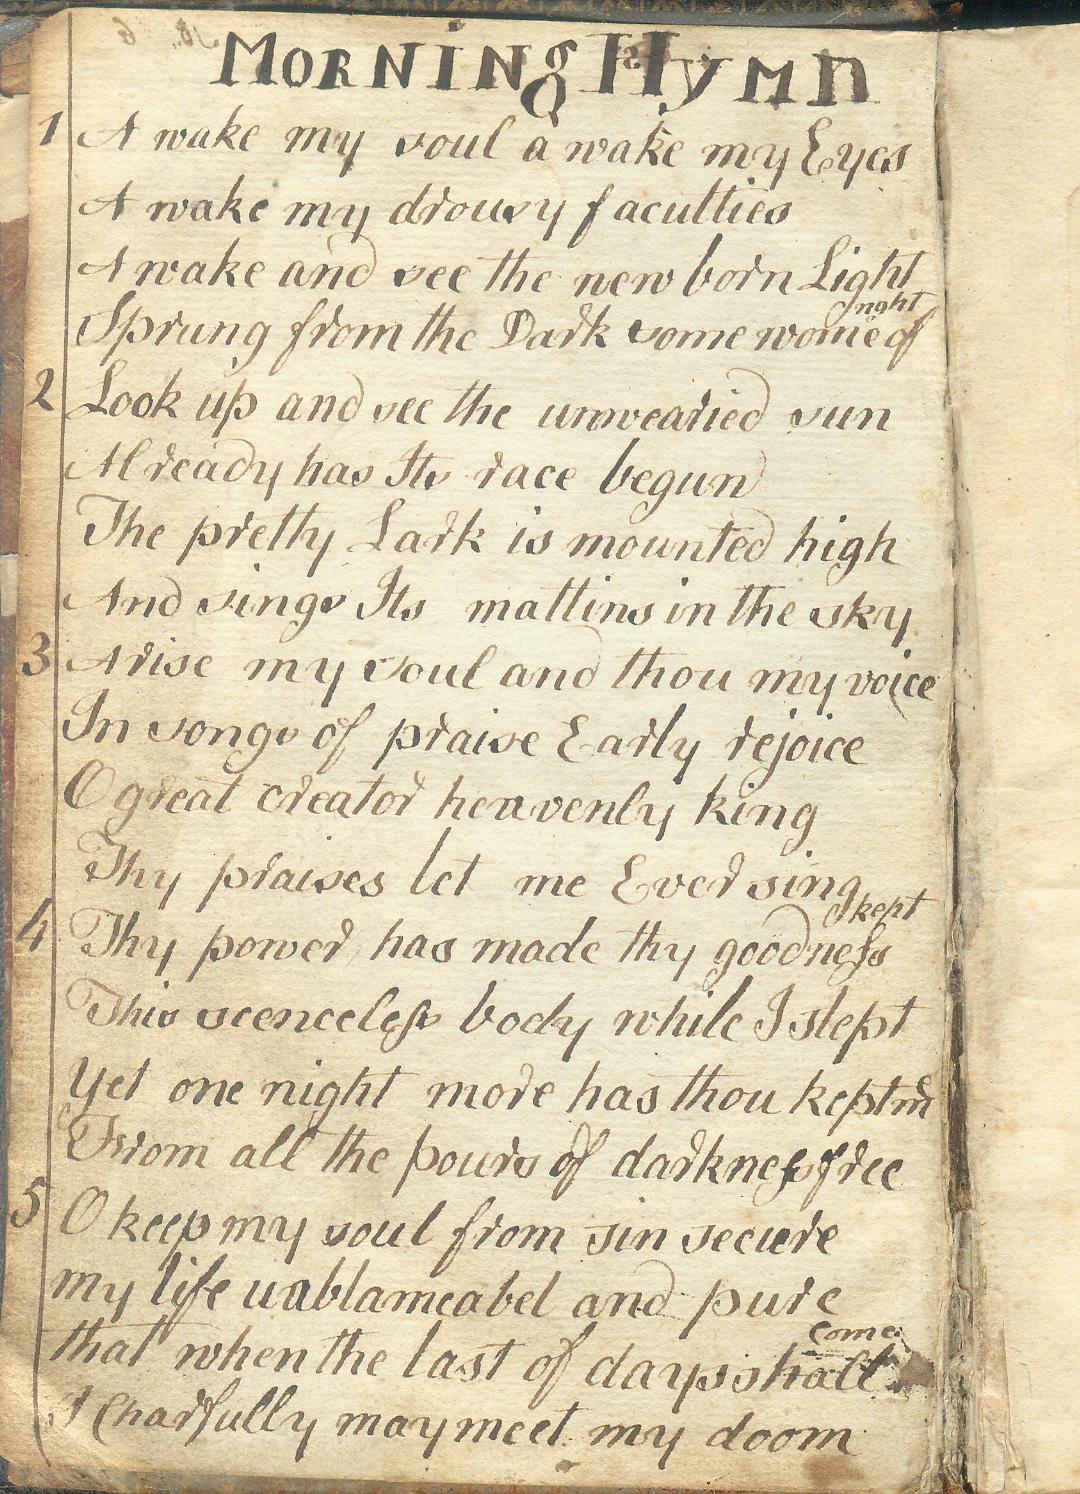 Morning Hymn
1 A wake my soul a wake my Eyes
A wake my drousy faculties
A wake and see the new born Light
Sprung from the Dark some wome of night
2 Look up and see the unwearied sun
Already has Its race begun
The pretty Lark is mounted high
And sings Its mattins in the sky
3 Arise my soul and thou my voice
In songs of praise Early rejoice
O great creator heavenly king
Thy praises let me Ever sing
4 Thy power has made thy goodness kept
This scenceless body while I slept
Yet one night more has thou kept me
From all the pours of darkness free
5 O keep my soul from sin secure
my life unblameabel and pure
that when the last of days shall come
I Charfully may meet my doom